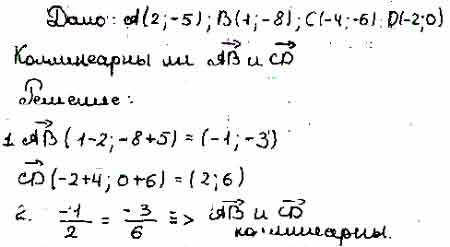 Дано: A(2;-5); B(1;-8); C(-4;-6) D(-2;0)
Коллинеарны ли AB→ и CD→
Решение:
1. AB→ (1-2; -8+5) = (-1; -3)
CD→ (-2+4; 0+6) = (2; 6)
2. -1/2 = -3/6 => AB→ и CD→
коллинеарны.